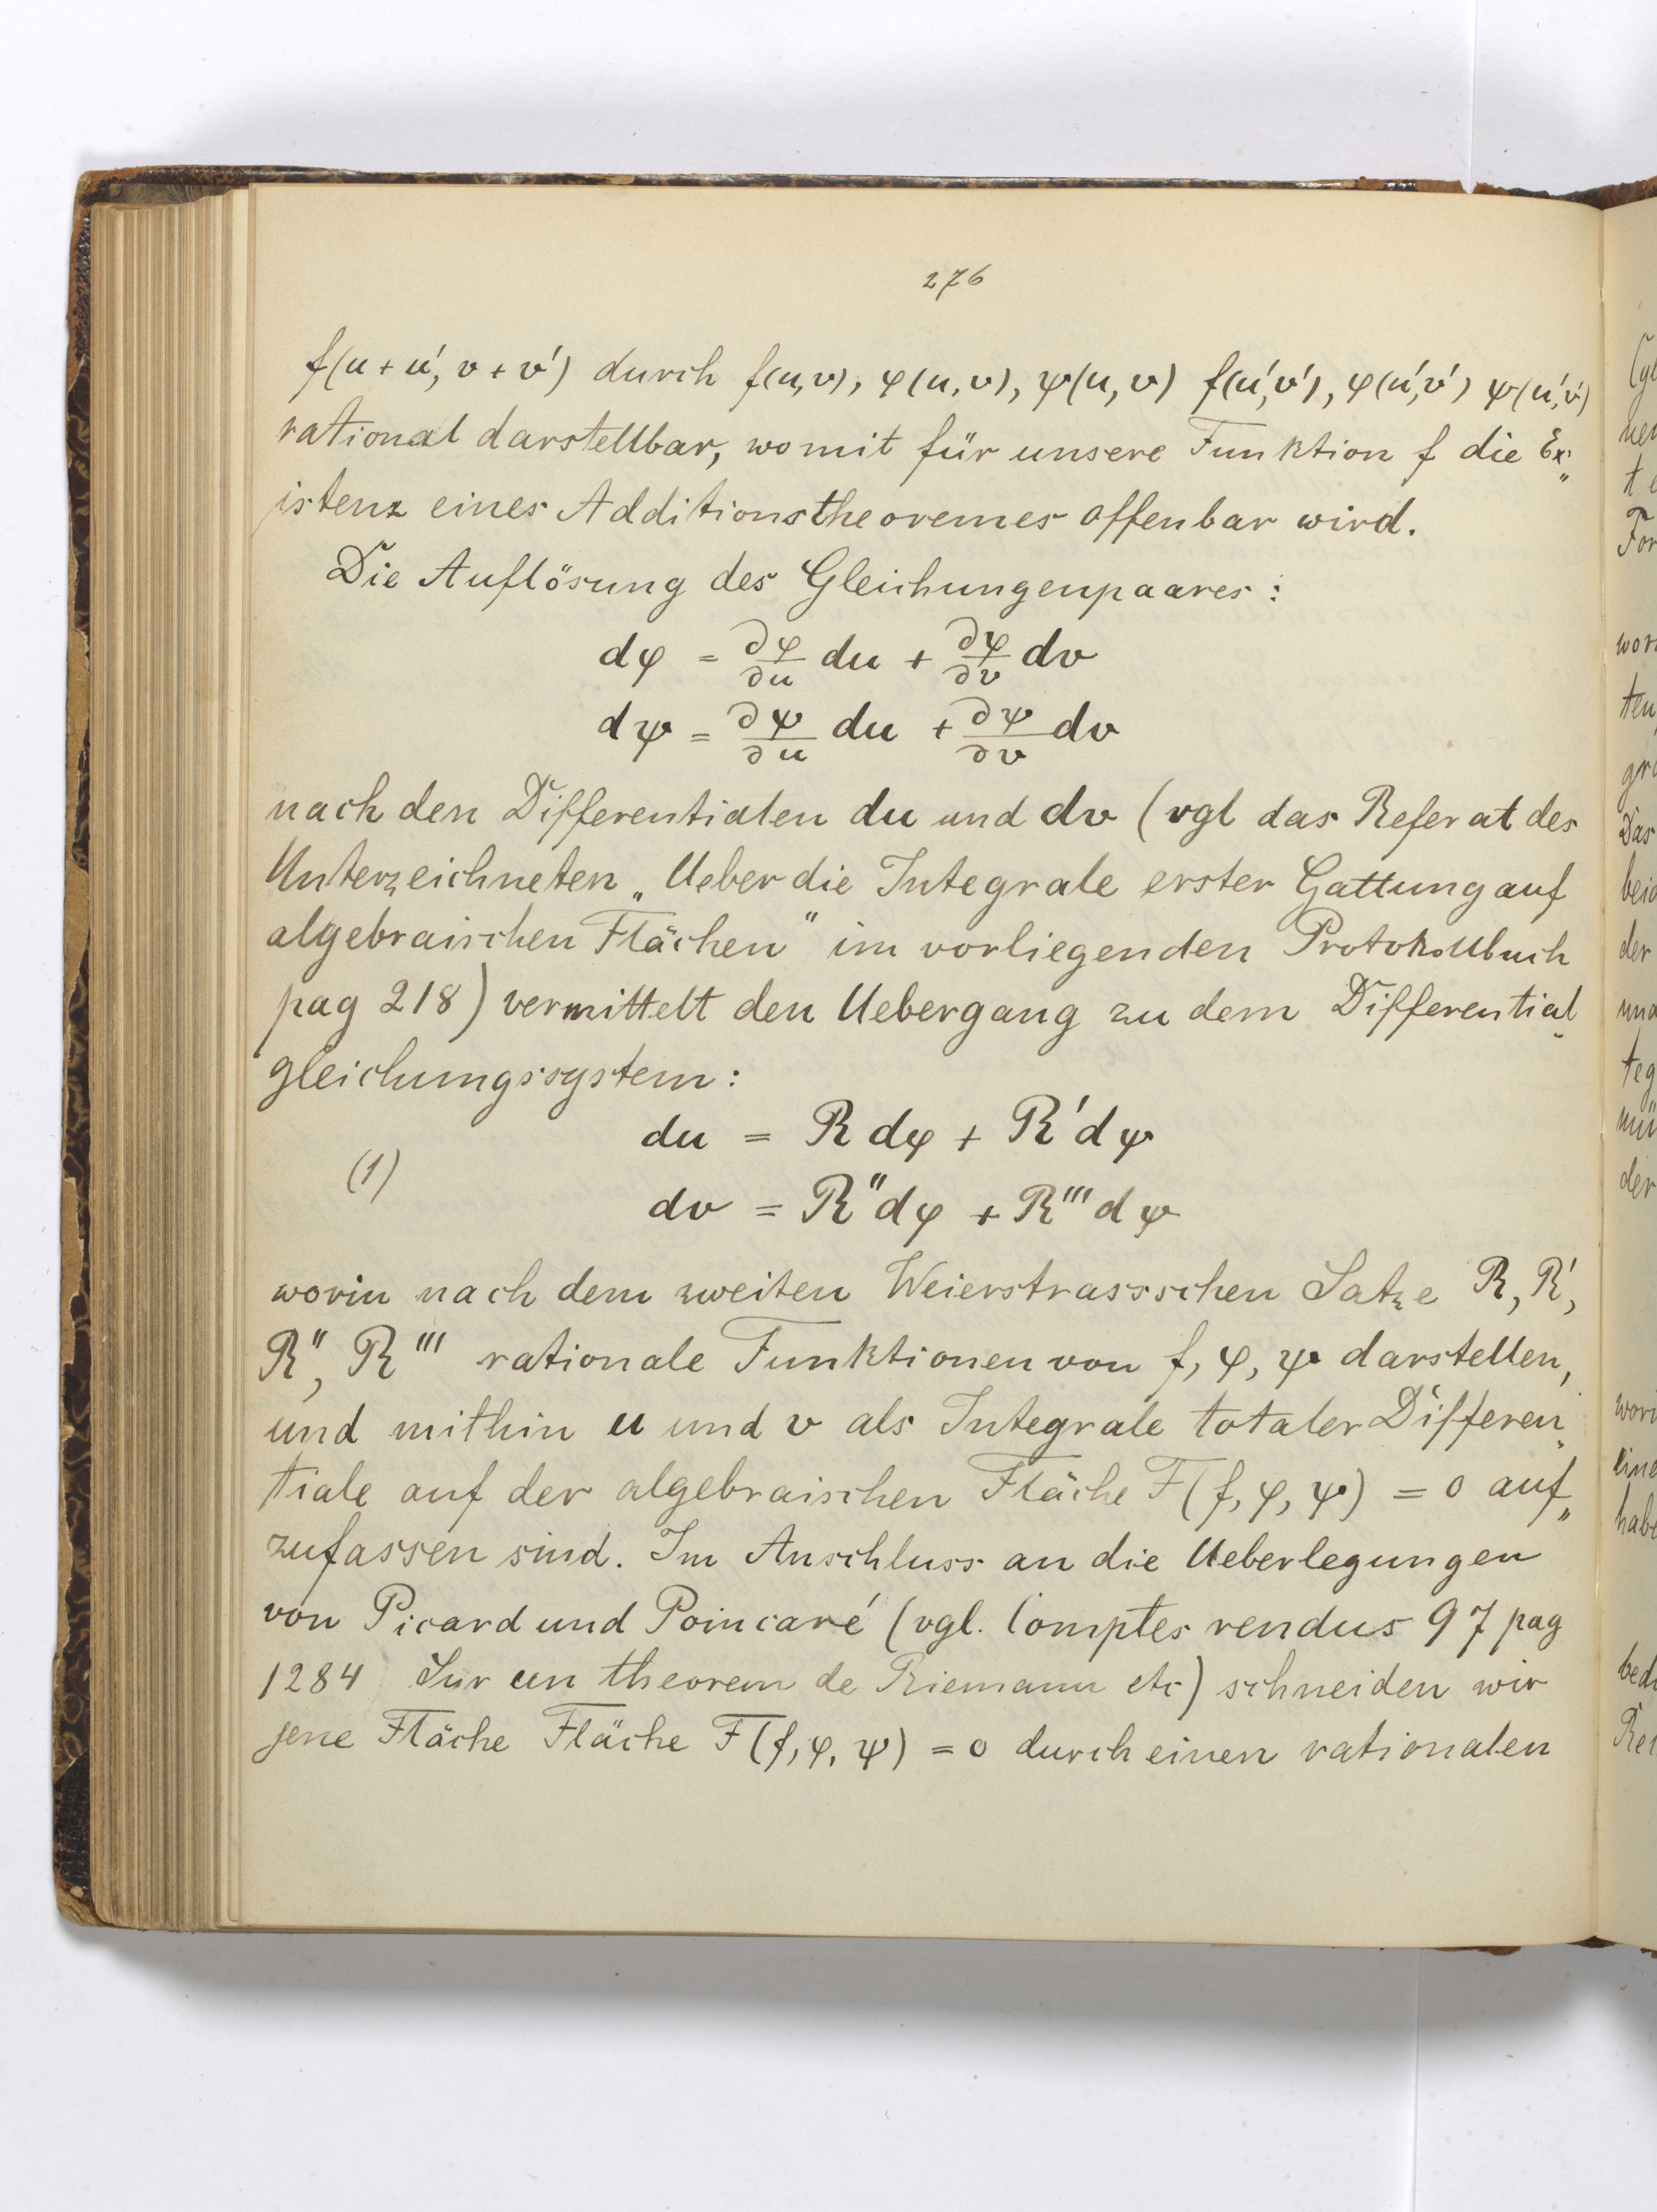 276
f(u + u', v + v') durch f(u,v), φ(u,v), ψ(u,v) f(u',v'), φ(u',v') ψ(u',v')
rational darstellbar, womit für unsere Funktion f die Ex„
istenz eines Additionstheoremes offenbar wird.
Die Auflösung des Gleichungenpaares:
dφ = ∂φ/∂u du + ∂φ/∂v dv
dψ = ∂ψ/∂u du + ∂ψ/∂v dv
nach den Differentialen du und dv (vgl das Referat des
Unterzeichneten „Ueber die Integrale erster Gattung auf
algebraischen Flächen" im vorliegenden Protokollbuch
pag 218) vermittelt den Uebergang zu dem Differential„
gleichungssystem:
du = R dφ + R' dψ
(1)
dv = R'' dφ + R''' dψ
worin nach dem zweiten Weierstrassschen Satze R, R',
R'', R''' rationale Funktionen von f, φ, ψ darstellen,
und mithin u und v als Integrale totaler Differen„
tiale auf der algebraischen Fläche F(f, φ, ψ) = 0 auf„
zufassen sind. Im Anschluss an die Ueberlegungen
von Picard und Poincaré (vgl. Comptes rendus 97 pag
1284 Sur un theorem de Riemann etc) schneiden wir
jene Fläche Fläche F(f, φ, ψ) = 0 durch einen rationalen